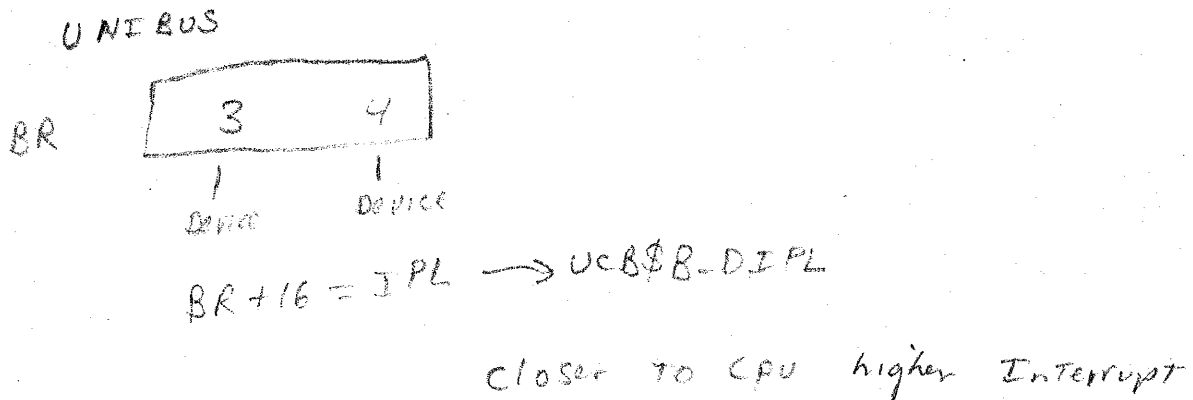 UNIBUS
BR 3 4
Device Device
BR + 16 = IPL → UCB$B_DIPL
Closer to CPU higher Interrupt